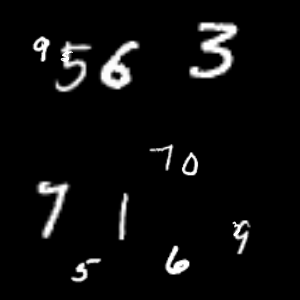 9 5 6 3
7 0
7 1 9
5 6